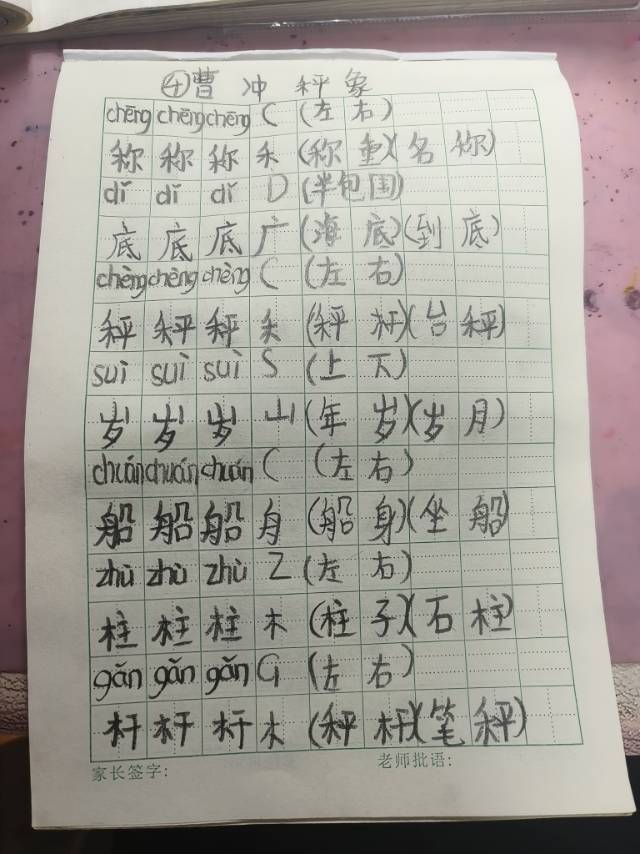 ④曹冲秤象
chēng chēng chēng C (左右)
称 称 称 禾 (称重)(名称)
dǐ dǐ dǐ D (半包围)
底 底 底 广 (海底)(到底)
chèng chèng chèng C (左右)
秤 秤 秤 禾 (秤杆)(台秤)
suì suì suì S (上下)
岁 岁 岁 山 (年岁)(岁月)
chuán chuán chuán C (左右)
船 船 船 舟 (船身)(坐船)
zhù zhù zhù Z (左右)
柱 柱 柱 木 (柱子)(石柱)
gǎn gǎn gǎn G (左右)
杆 杆 杆 木 (秤杆)(笔秤)
家长签字: 老师批语: